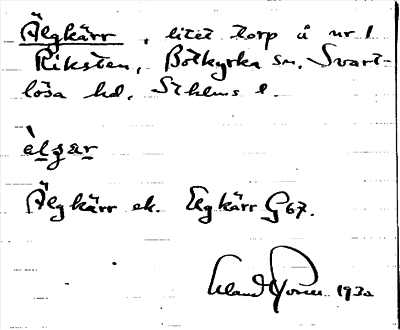 Älgkärr, litet torp å nr 1
Riksten, Botkyrka sn, Svart-
lösa hd, Sthlms l.
èlgær
Älgkärr ek. Elgkärr G67.
1930